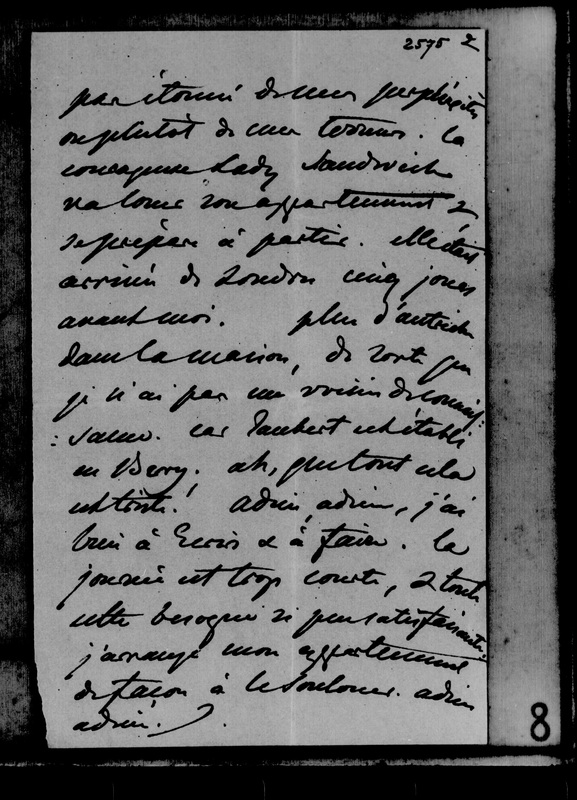 2575 2
pas étonné de mes perplexités
ou plutôt de mes terreurs. la
courageuse Lady Sandwich
va louer son appartement &
se prépare à partir. elle était
arrivée de Londres cinq jours
avant moi. plus d'autriche
dans la maison, de sorte que
je n'ai pas un voisin de connais-
:sance. car Jaubert est établi
en Berry. ah, que tout cela
est triste! adieu, adieu, j'ai
bien à Ecrire & à faire. la
journée est trop courte, & toute
cette besogne si peu satisfaisante.
j'arrange mon appartement
de façon à le souslouer. adieu
adieu.
8